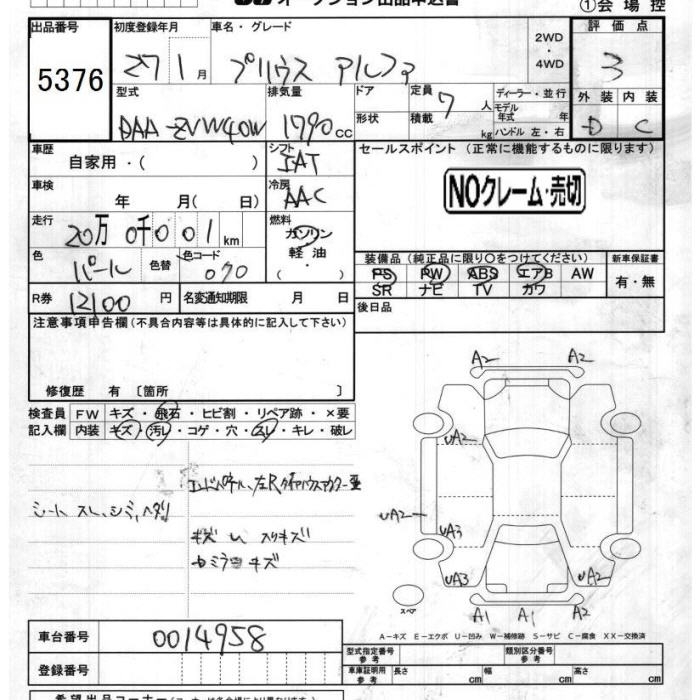 オークション出品申込書 ①会場控
出品番号 初度登録年月 車名・グレード 2WD ・ 4WD 評価点
5376 27 1月 プリウス アルファ 3
型式 排気量 ドア 定員 7人 ディーラー・並行 モデル 外装 内装
DAA-ZVW40W 1790cc 形状 積載 kg 年式 年 ハンドル 左・右 D C
車歴 シフト セールスポイント (正常に機能するものに限ります)
自家用・( ) IAT
車検 冷房 NOクレーム・売切
年 月( 日) AAC
走行 燃料
20万0千001km ガソリン
色 色替 色コード 軽油 装備品 (純正品に限り○をつけてください) 新車保証書
パール 070 ・( ) PS PW ABS エアB AW 有・無
R券 12100円 名変通知期限 月 日 SR ナビ TV カワ
注意事項申告欄(不具合内容等は具体的に記入して下さい) 後日品
修復歴 有 〔箇所 〕
検査員 FW キズ・飛石・ヒビ割・リペア跡・×要
記入欄 内装 キズ・汚レ・コゲ・穴・スレ・キレ・破レ
シート スレ、シミ、ヘタリ
キズ 凹 スリキズ
ミラーキズ
A2 A2
UA2
UA2
UA3
UA3 UA2
A1 A1 A2
スペア
A-キズ E-エクボ U-凹み W-補修跡 S-サビ C-腐食 XX-交換済
車台番号 0014958
型式指定番号 参考 類別区分番号 参考
登録番号 車庫証明用 参考 長さ cm 幅 cm 高さ cm
希望出品コーナー